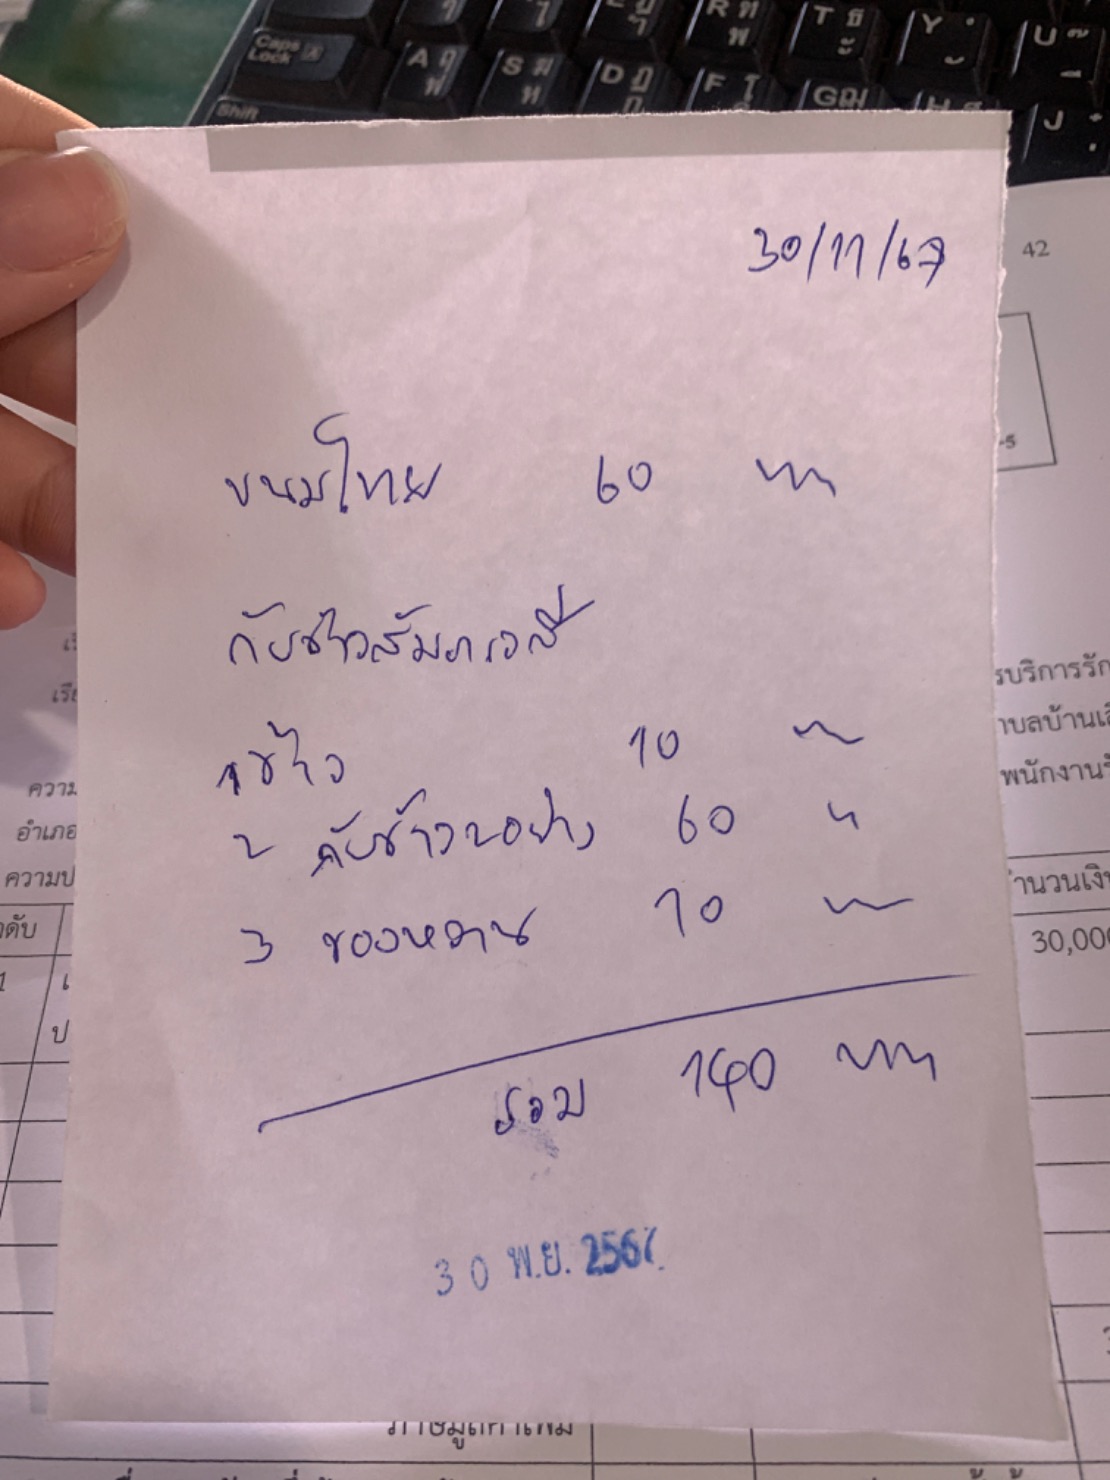 30/11/67
ขนมไทย 60 บาท
กับข้าวสัมภเวสี
1 ข้าว 10 บาท
2 กับข้าว 2 อย่าง 60 "
3 ของหวาน 70 บาท
รวม 140 บาท
30 พ.ย. 2567
42
-5
รบริการรัก
าบลบ้านเ
พนักงาน
ความ
อำเภอ
ความป
ำนวนเงิ
30,00
1
ป
ภาษีมูลค่าเพิ่ม
Caps Lock
Shift
A S D F G
R T Y U
J